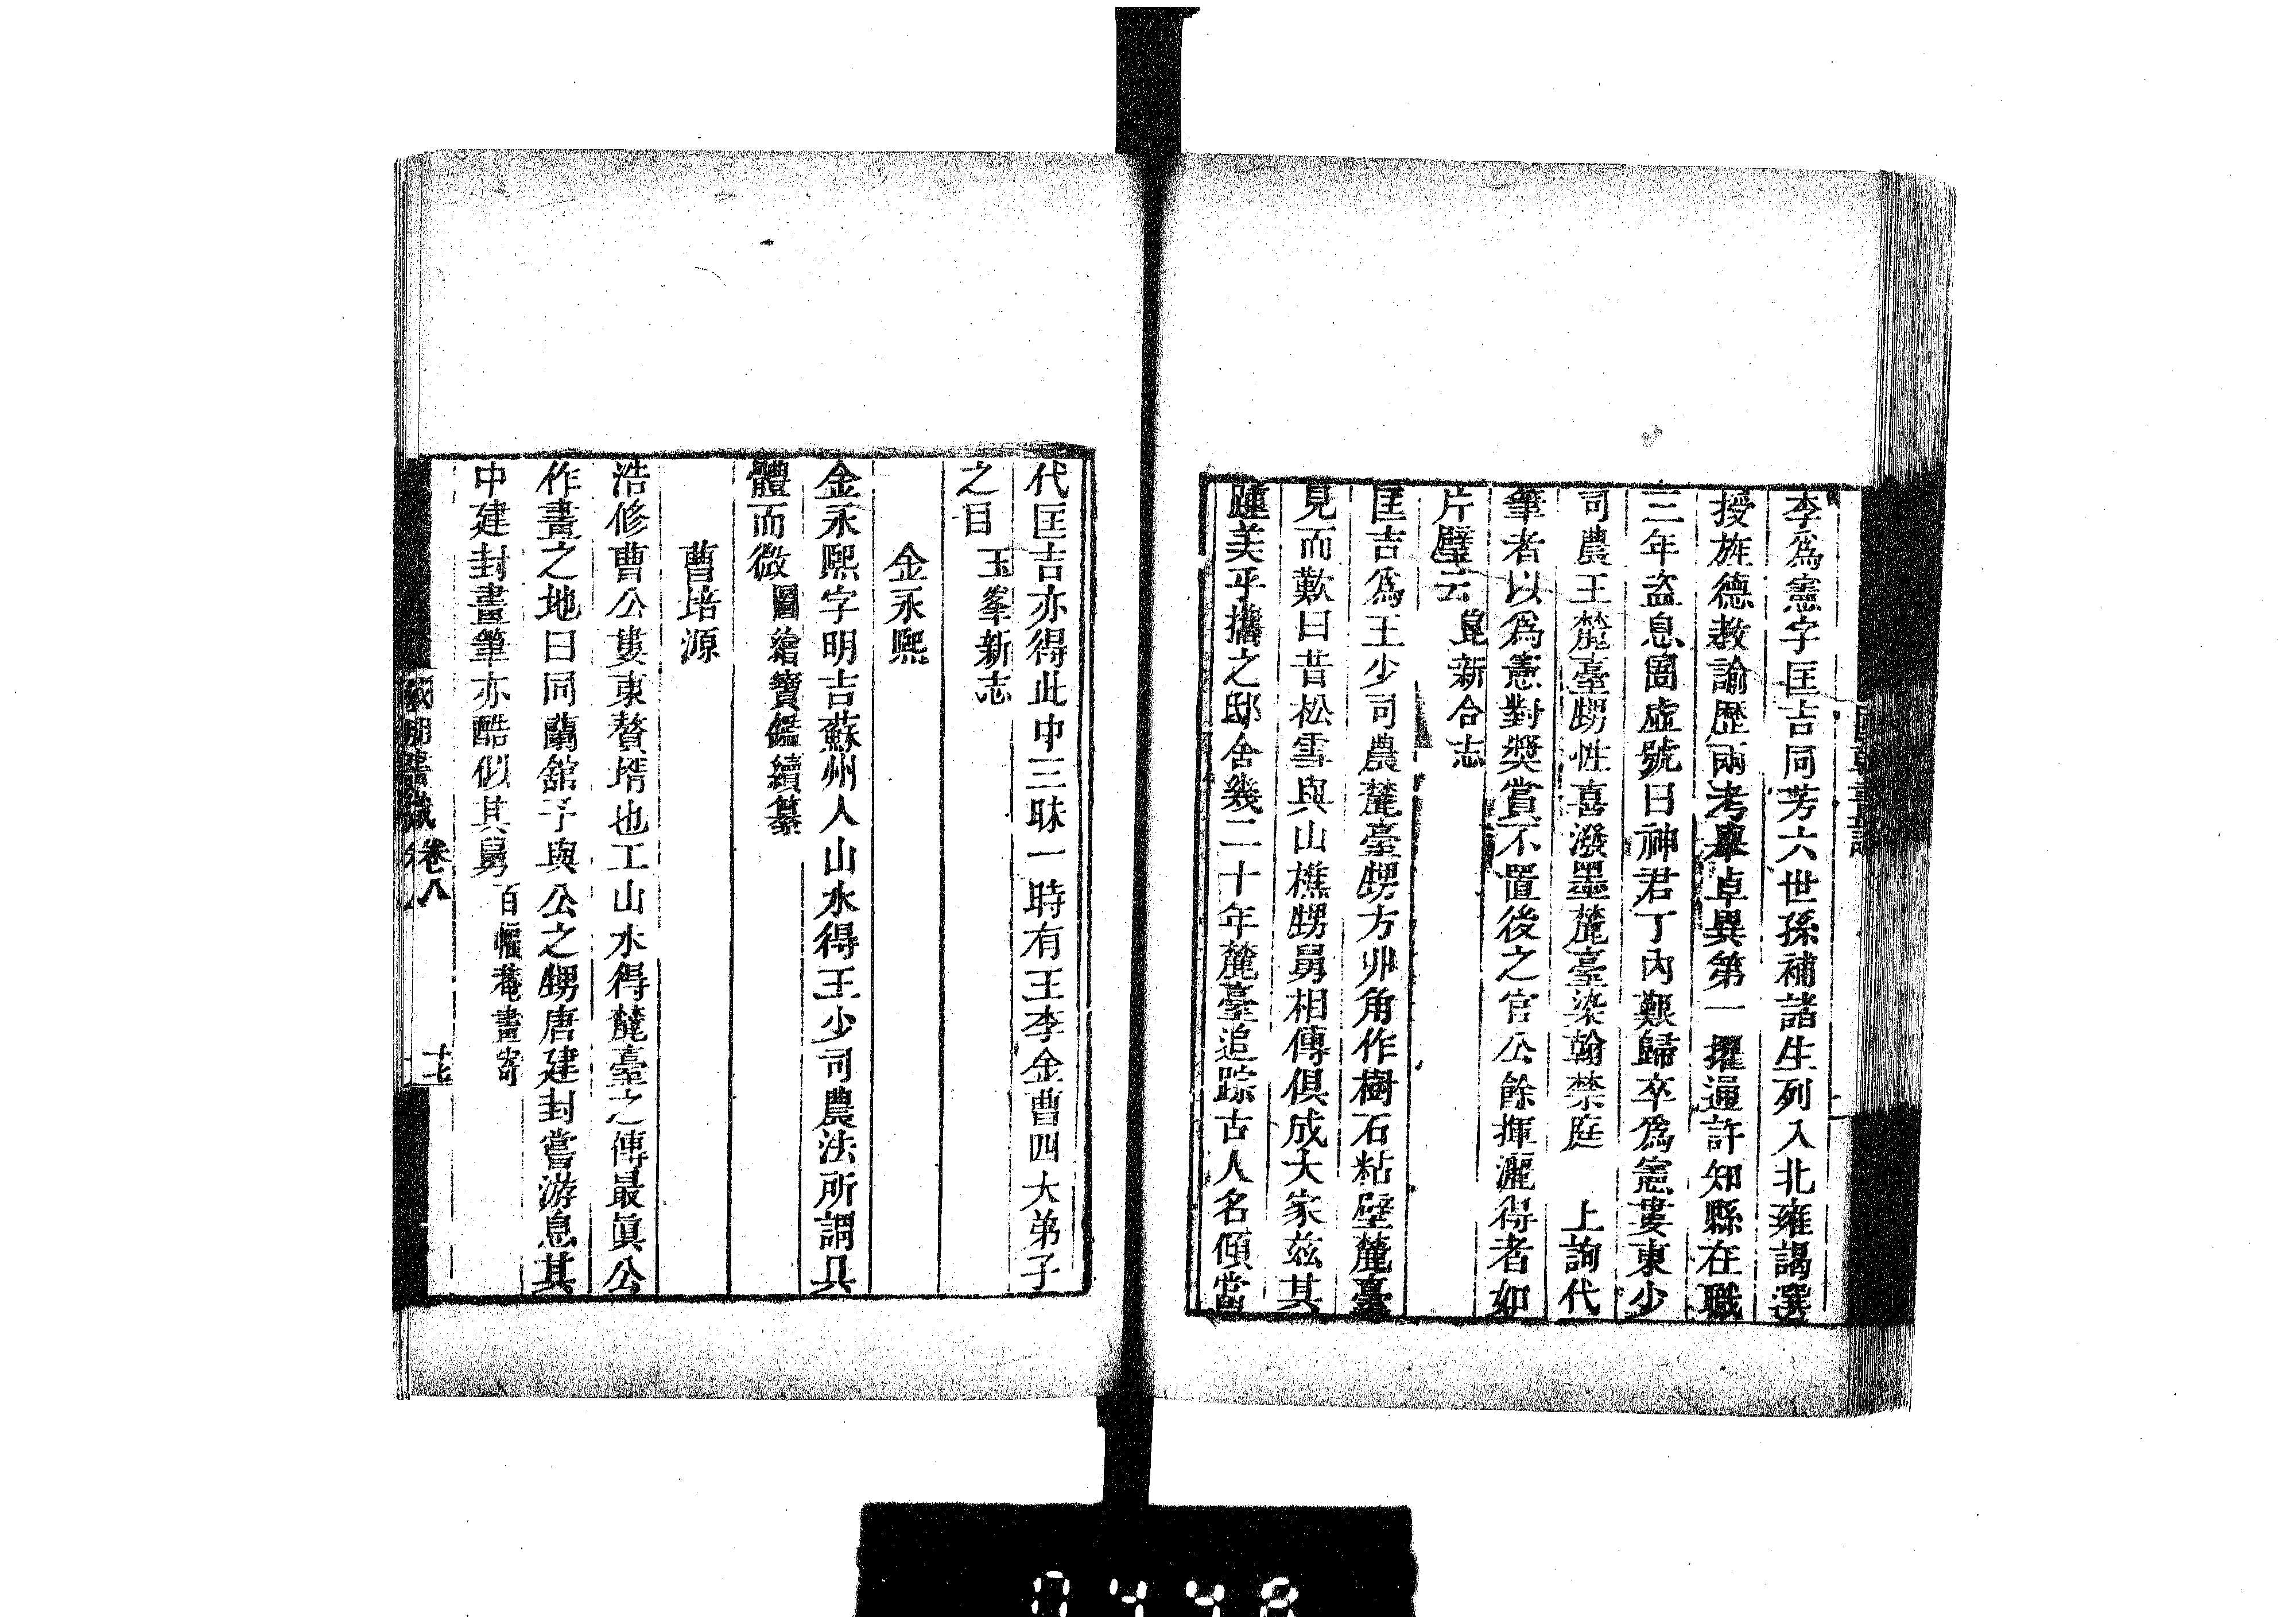 李爲憲字匡吉同芳六世孫補諸生列入北雍謁選
授旌德教諭歷兩考舉卓異第一擢通許知縣在職
三年盜息囹虛號曰神君丁內艱歸卒爲憲婁東少
司農王麓臺甥性喜潑墨麓臺染翰禁庭 上詢代
筆者以爲憲對獎賞不置後之官公餘揮灑得者如
片璧云 崑新合志
匡吉爲王少司農麓臺甥方丱角作樹石粘壁麓臺
見而歎曰昔松雪與山樵甥舅相傳俱成大家茲其
踵美乎攜之邸舍幾二十年麓臺追踪古人名傾當
代匡吉亦得此中三昧一時有王李金曹四大弟子
之目 玉峯新志
金永熙
金永熙字明吉蘇州人山水得王少司農法所謂具
體而微 圖繪寶鑑續纂
曹培源
浩修曹公婁東贅壻也工山水得麓臺之傳最眞公
作畫之地曰同蘭舘予與公之甥唐建封嘗游息其
中建封畫筆亦酷似其舅 百幅菴畫寄
國朝畫識 卷八 十七